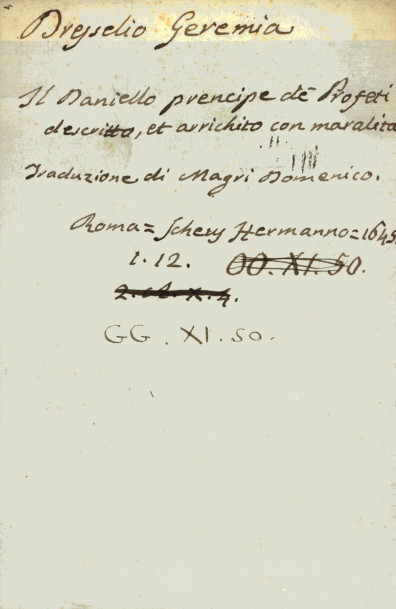 Dresselio Geremia
Il Daniello prencipe de Profeti
descritto, et arrichito con maralita
Traduzione di Magri Domenico.
Roma= Scheus Hermanno=1645.
1. 12. OO. XI. 50.
GG. XI. 50.